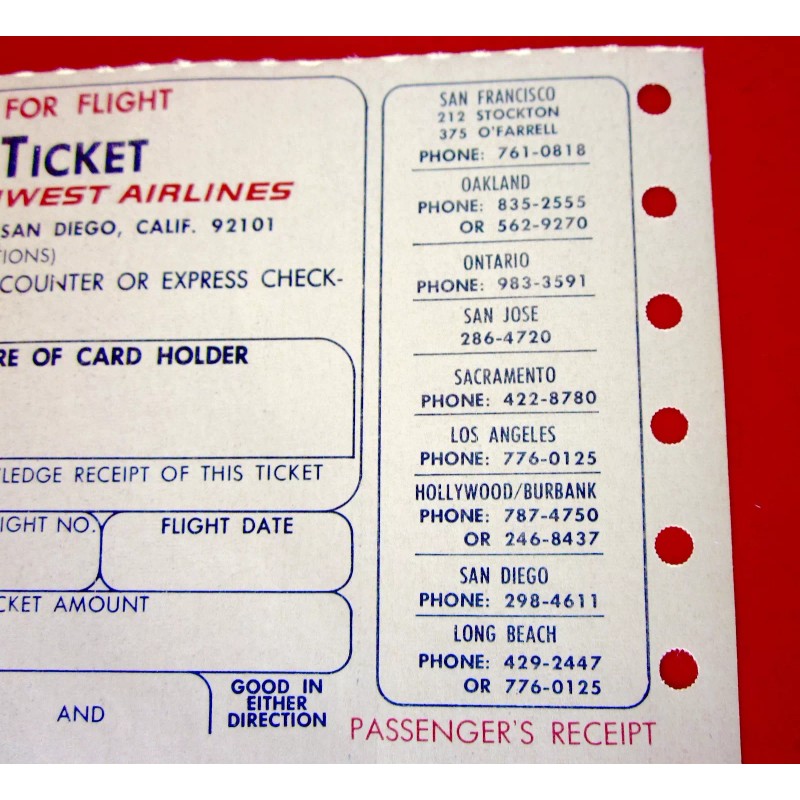 FOR FLIGHT
TICKET
WEST AIRLINES
SAN DIEGO, CALIF. 92101
TIONS)
COUNTER OR EXPRESS CHECK-
RE OF CARD HOLDER
LEDGE RECEIPT OF THIS TICKET
IGHT NO.
FLIGHT DATE
CKET AMOUNT
AND
GOOD IN
EITHER
DIRECTION
SAN FRANCISCO
212 STOCKTON
375 O'FARRELL
PHONE: 761-0818
OAKLAND
PHONE: 835-2555
OR 562-9270
ONTARIO
PHONE: 983-3591
SAN JOSE
286-4720
SACRAMENTO
PHONE: 422-8780
LOS ANGELES
PHONE: 776-0125
HOLLYWOOD/BURBANK
PHONE: 787-4750
OR 246-8437
SAN DIEGO
PHONE: 298-4611
LONG BEACH
PHONE: 429-2447
OR 776-0125
PASSENGER'S RECEIPT